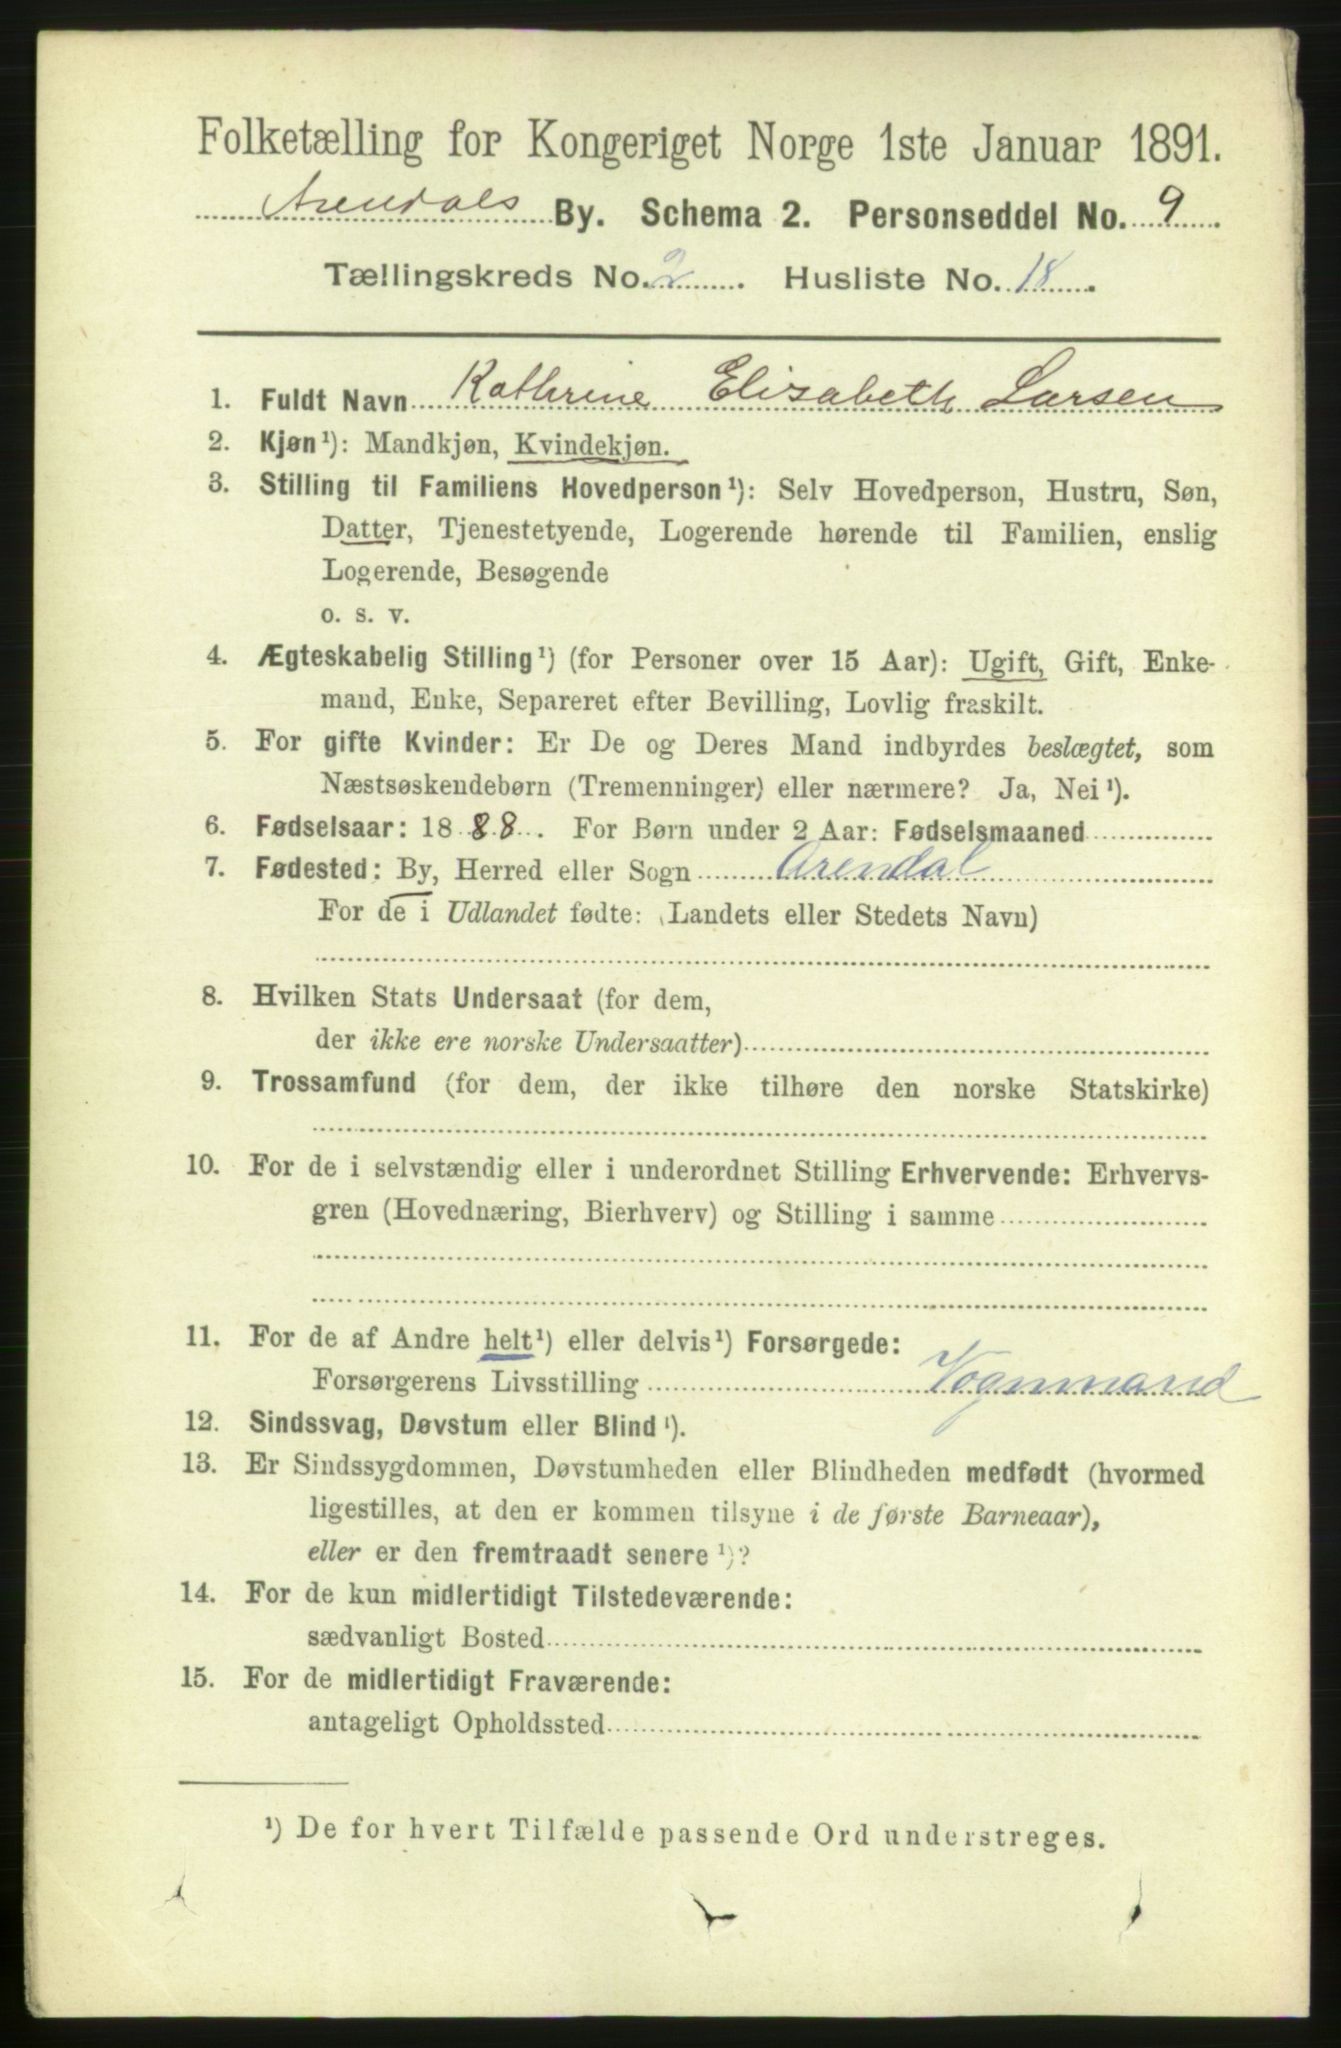 Folketælling for Kongeriget Norge 1ste Januar 1891.
Arendals By. Schema 2. Personseddel No. 9
Tællingskreds No. 2. Husliste No. 18.
1. Fuldt Navn Kathrine Elisabeth Larsen
2. Kjøn¹): Mandkjøn, Kvindekjøn.
3. Stilling til Familiens Hovedperson¹): Selv Hovedperson, Hustru, Søn,
Datter, Tjenestetyende, Logerende hørende til Familien, enslig
Logerende, Besøgende
o. s. v.
4. Ægteskabelig Stilling¹) (for Personer over 15 Aar): Ugift, Gift, Enke-
mand, Enke, Separeret efter Bevilling, Lovlig fraskilt.
5. For gifte Kvinder: Er De og Deres Mand indbyrdes beslægtet, som
Næstsøskendebørn (Tremenninger) eller nærmere? Ja, Nei¹).
6. Fødselsaar: 1888. For Børn under 2 Aar: Fødselsmaaned
7. Fødested: By, Herred eller Sogn Arendal
For de i Udlandet fødte: (Landets eller Stedets Navn)
8. Hvilken Stats Undersaat (for dem,
der ikke ere norske Undersaatter)
9. Trossamfund (for dem, der ikke tilhøre den norske Statskirke)
10. For de i selvstændig eller i underordnet Stilling Erhvervende: Erhvervs-
gren (Hovednæring, Bierhverv) og Stilling i samme
11. For de af Andre helt¹) eller delvis¹) Forsørgede:
Forsørgerens Livsstilling Vognmand
12. Sindssvag, Døvstum eller Blind¹).
13. Er Sindssygdommen, Døvstumheden eller Blindheden medfødt (hvormed
ligestilles, at den er kommen tilsyne i de første Barneaar),
eller er den fremtraadt senere¹)?
14. For de kun midlertidigt Tilstedeværende:
sædvanligt Bosted
15. For de midlertidigt Fraværende:
antageligt Opholdssted
¹) De for hvert Tilfælde passende Ord understreges.